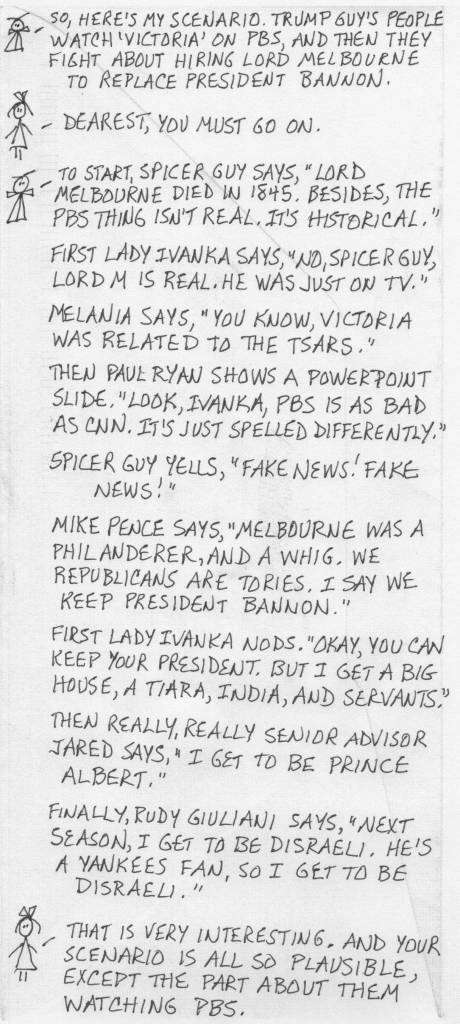 SO, HERE'S MY SCENARIO. TRUMP GUY'S PEOPLE
WATCH 'VICTORIA' ON PBS, AND THEN THEY
FIGHT ABOUT HIRING LORD MELBOURNE
TO REPLACE PRESIDENT BANNON.
DEAREST, YOU MUST GO ON.
TO START, SPICER GUY SAYS, "LORD
MELBOURNE DIED IN 1845. BESIDES, THE
PBS THING ISN'T REAL. IT'S HISTORICAL."
FIRST LADY IVANKA SAYS, "NO, SPICER GUY,
LORD M IS REAL. HE WAS JUST ON TV."
MELANIA SAYS, "YOU KNOW, VICTORIA
WAS RELATED TO THE TSARS."
THEN PAUL RYAN SHOWS A POWERPOINT
SLIDE. "LOOK, IVANKA, PBS IS AS BAD
AS CNN. IT'S JUST SPELLED DIFFERENTLY."
SPICER GUY YELLS, "FAKE NEWS! FAKE
NEWS!"
MIKE PENCE SAYS, "MELBOURNE WAS A
PHILANDERER, AND A WHIG. WE
REPUBLICANS ARE TORIES. I SAY WE
KEEP PRESIDENT BANNON."
FIRST LADY IVANKA NODS. "OKAY, YOU CAN
KEEP YOUR PRESIDENT. BUT I GET A BIG
HOUSE, A TIARA, INDIA, AND SERVANTS."
THEN REALLY, REALLY SENIOR ADVISOR
JARED SAYS, "I GET TO BE PRINCE
ALBERT."
FINALLY, RUDY GIULIANI SAYS, "NEXT
SEASON, I GET TO BE DISRAELI. HE'S
A YANKEES FAN, SO I GET TO BE
DISRAELI."
THAT IS VERY INTERESTING. AND YOUR
SCENARIO IS ALL SO PLAUSIBLE,
EXCEPT THE PART ABOUT THEM
WATCHING PBS.